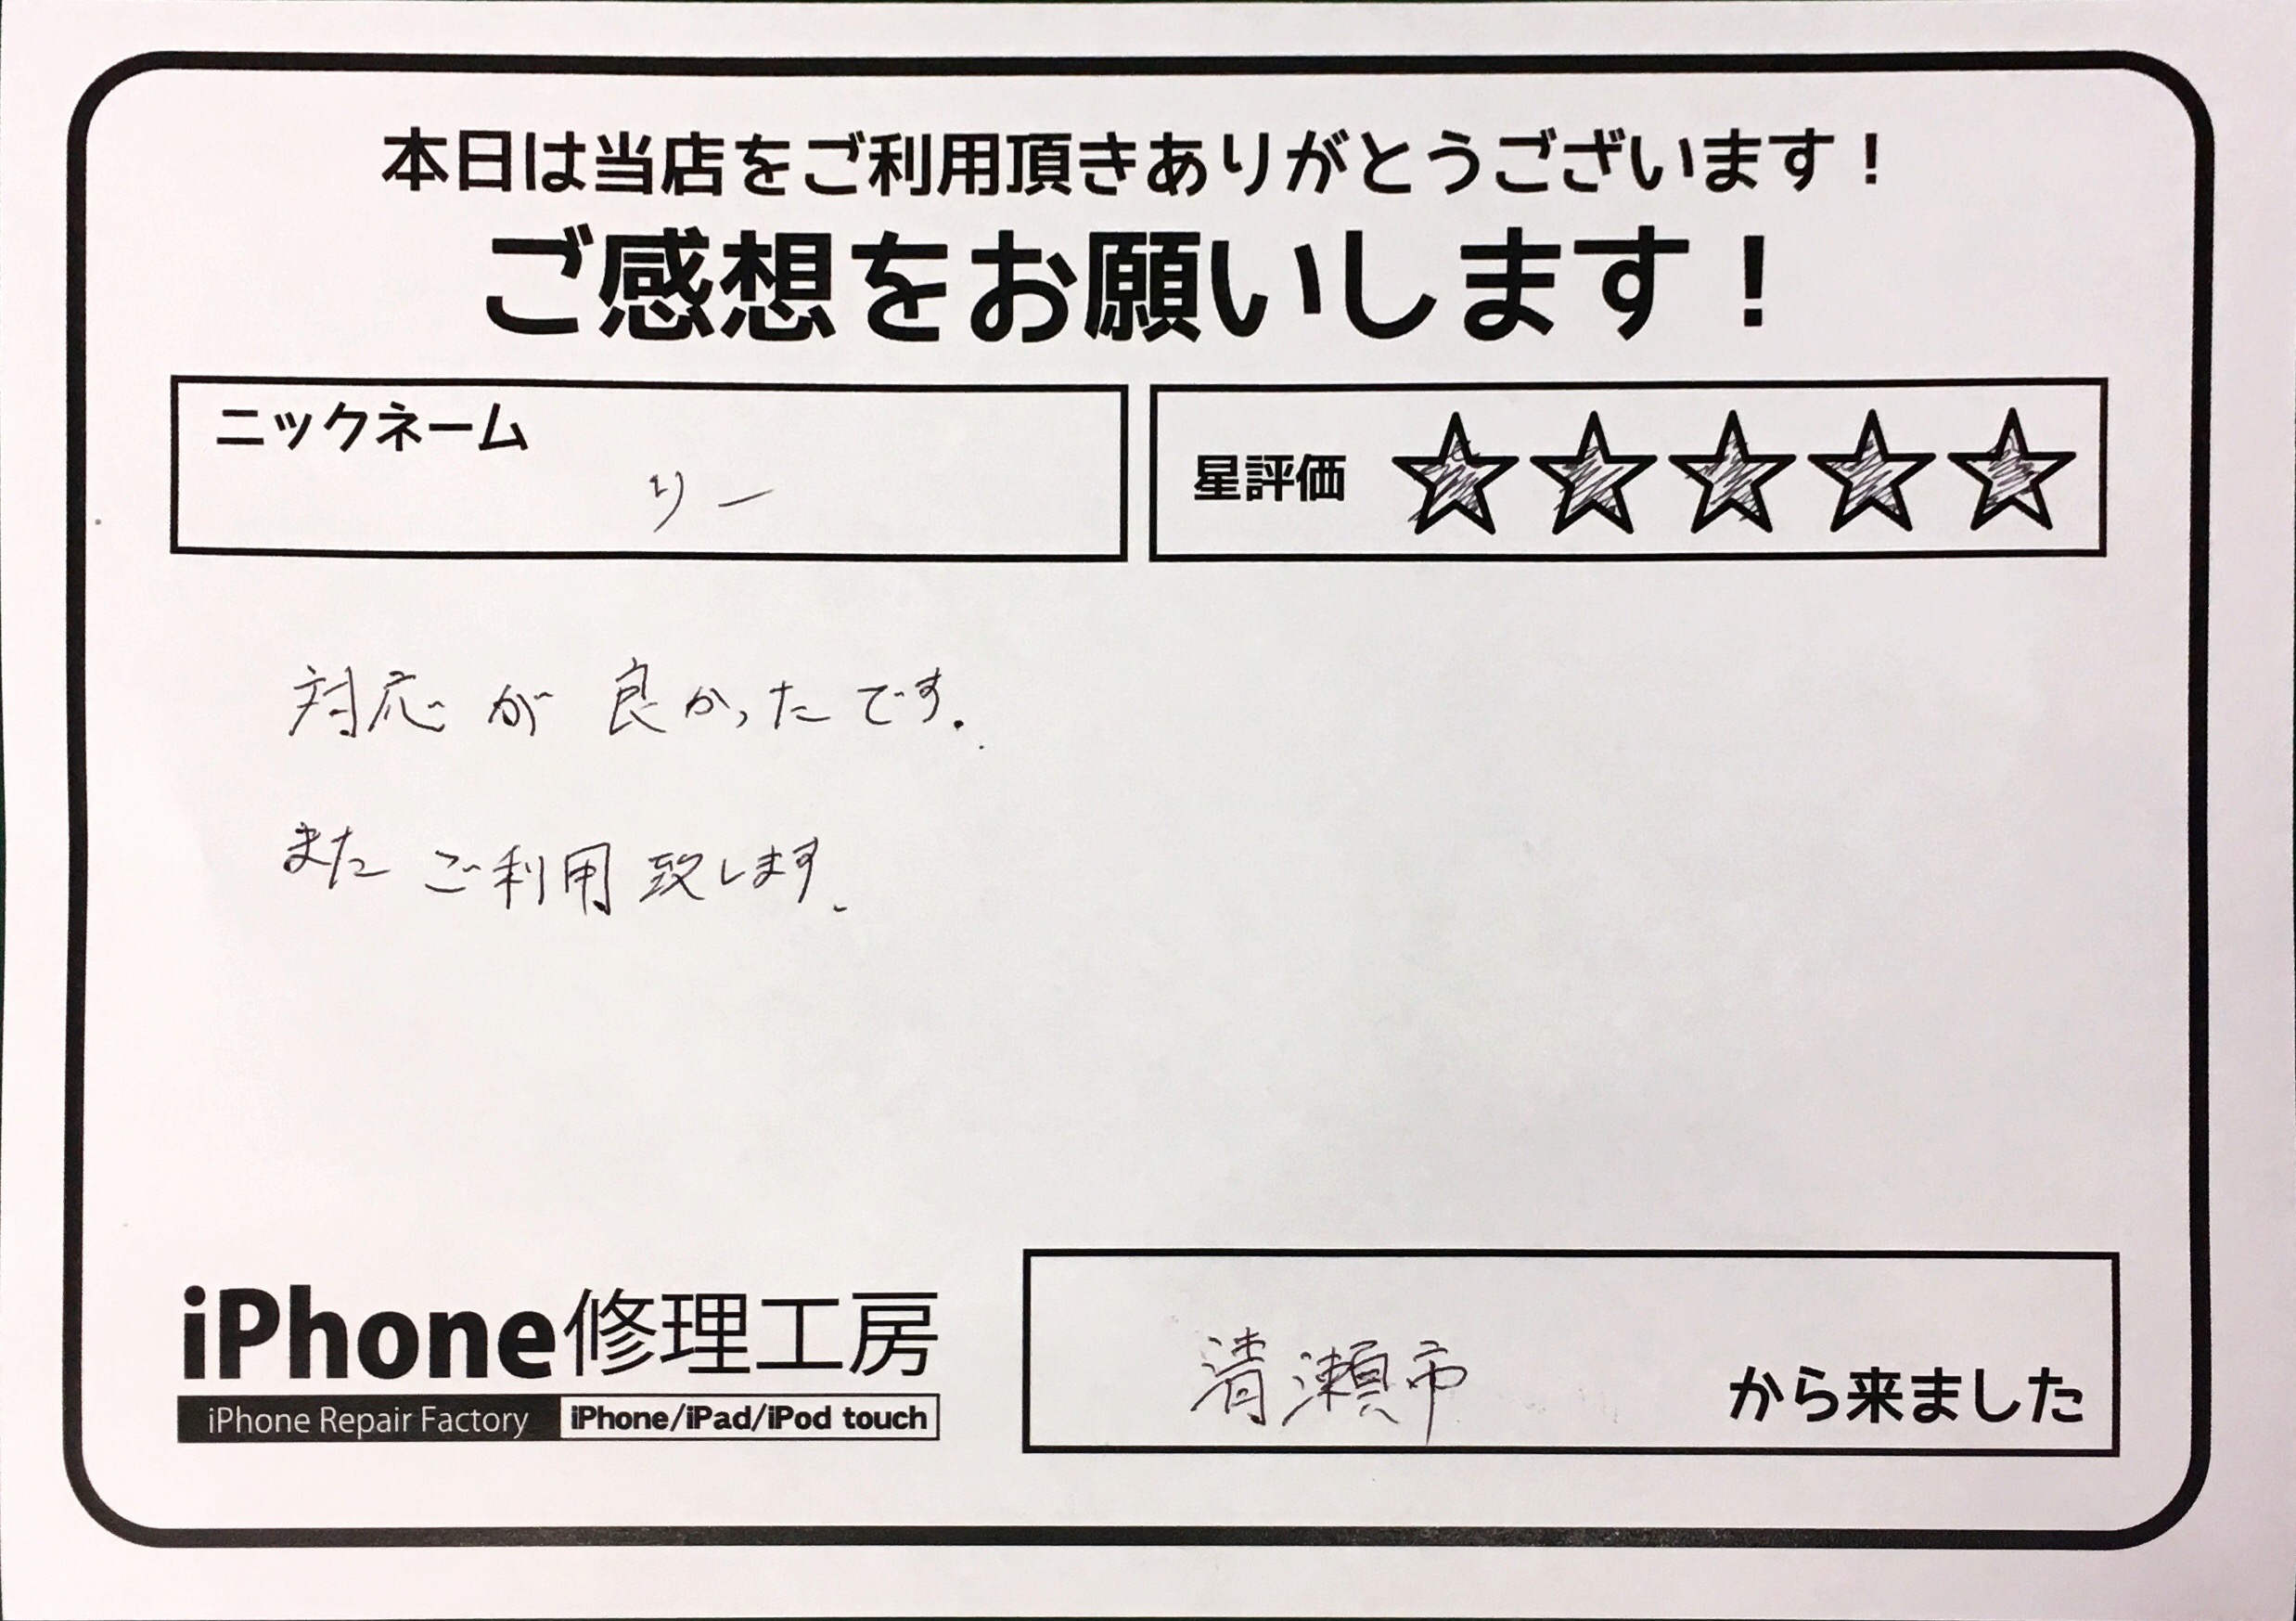 本日は当店をご利用頂きありがとうございます！
ご感想をお願いします！
ニックネーム
りー
星評価 ☆☆☆☆☆
対応が良かったです.
またご利用致します.
iPhone修理工房
iPhone Repair Factory iPhone/iPad/iPod touch
清瀬市 から来ました